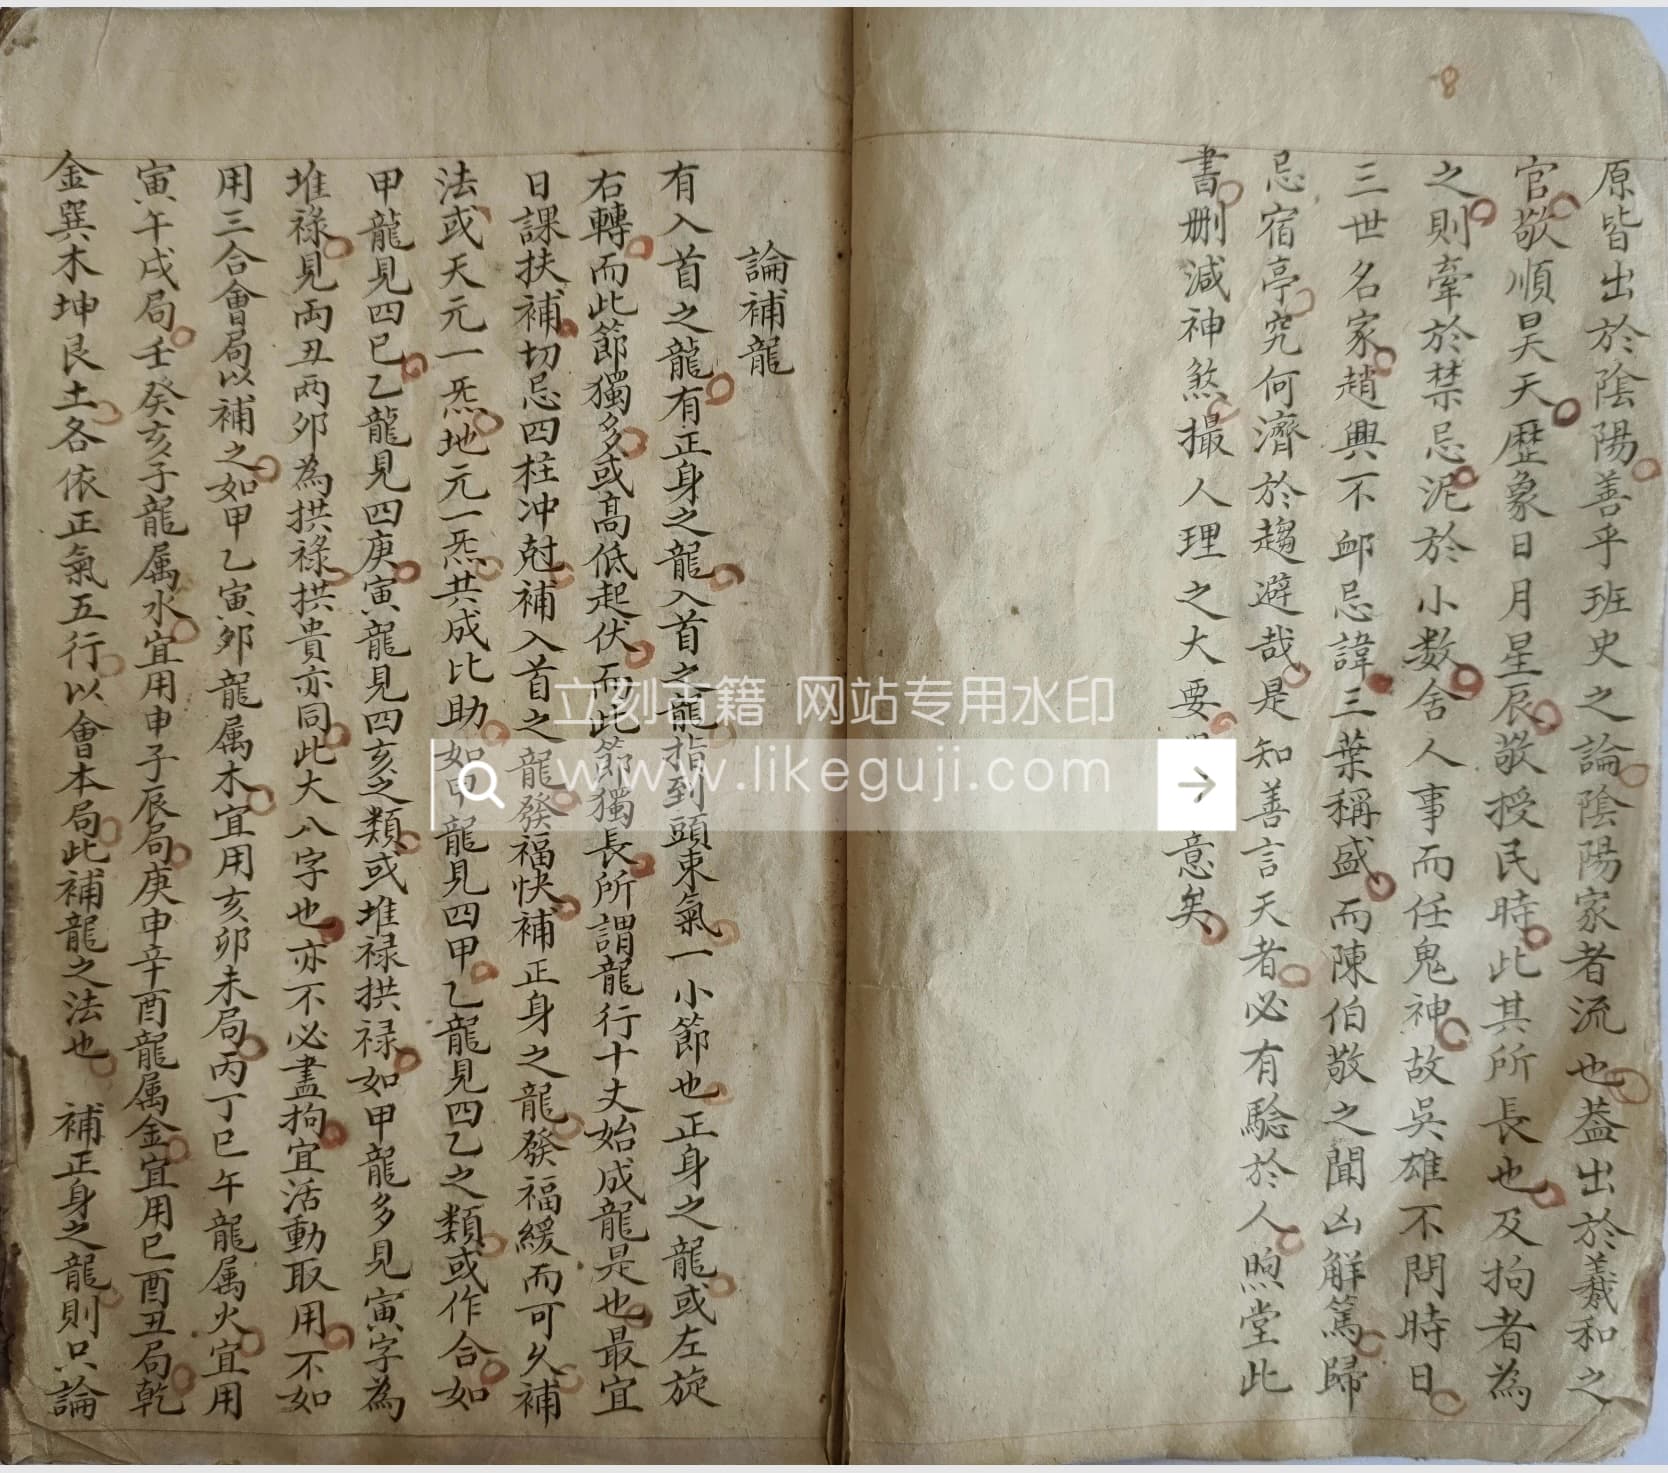 8
原皆出於陰陽善乎班史之論陰陽家者流也蓋出於羲和之
官敬順昊天歷象日月星辰敬授民時此其所長也及拘者為
之則牽於禁忌泥於小数舍人事而任鬼神故吳雄不問時日
三世名家趙興不卹忌諱三葉稱盛而陳伯敬之聞凶解駡歸
忌宿亭究何濟於趨避哉是知善言天者必有驗於人煦堂此
書删減神煞撮人理之大要意矣
論補龍
有入首之龍有正身之龍入首之龍指到頭束氣一小節也正身之龍或左旋
右轉而此節獨多或高低起伏而此節獨長所謂龍行十丈始成龍是也最宜
日課扶補切忌四柱冲尅補入首之龍發福快補正身之龍發福緩而可久補
法或天元一炁地元一炁共成比助如甲龍見四甲乙龍見四乙之類或作合如
甲龍見四巳乙龍見四庚寅龍見四亥之類或堆禄拱禄如甲龍多見寅字為
堆祿見両丑两夘為拱祿拱貴亦同此大八字也亦不必盡拘宜活動取用不如
用三合會局以補之如甲乙寅夘龍属木宜用亥卯未局丙丁巳午龍属火宜用
寅午戌局壬癸亥子龍属水宜用申子辰局庚申辛酉龍属金宜用巳酉丑局乾
金巽木坤艮土各依正氣五行以會本局此補龍之法也 補正身之龍則只論
立刻古籍 网站专用水印
www.likeguji.com